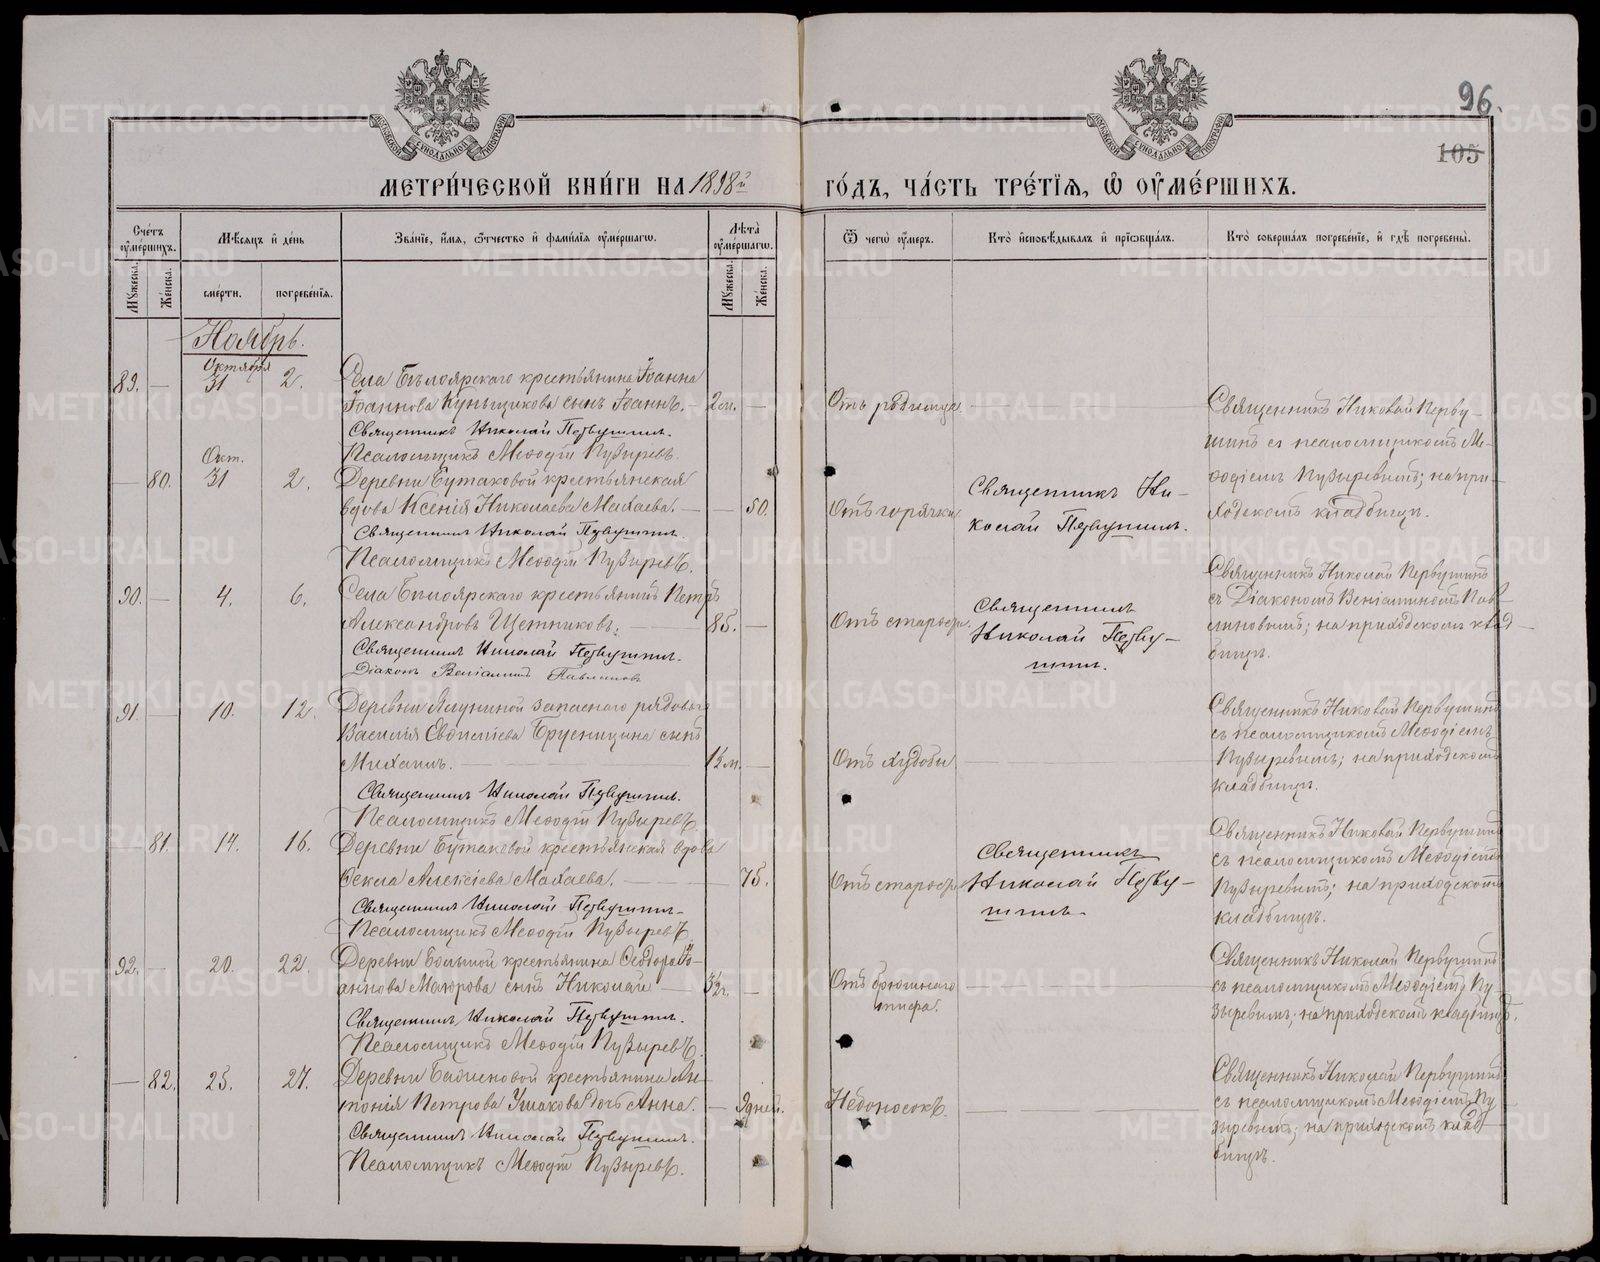 96.
105
МЕТРИ́ЧЕСКОЙ КНИ́ГИ НА 1898й ГО́ДЪ, ЧА́СТЬ ТРЕ́ТІѦ, Ѿ ОУ҆МЕ́РШИХЪ.
Сче́тъ оу҆ме́ршихъ.
Мꙋжеска.
Же́нска.
Мѣ́сяцъ и҆ де́нь
сме́рти.
погребе́нїя.
Зва́нїе, и҆́мя, ѻ҆́тчество и҆ фами́лїя оу҆ме́ршагѡ.
Лѣ́та оу҆ме́ршагѡ.
Мꙋжеска.
Же́нска.
Ѿ чегѡ̀ оу҆́меръ.
Кто̀ и҆сповѣ́дывалъ и҆ прїѡбща́лъ.
Кто̀ соверша́лъ погребе́нїе, и҆ гдѣ̀ погребены̀.
Ноябрь.
Октября
89. — 31 2.
Села Бѣлоярскаго крестьянина Іоанна
Іоаннова Куньщикова сынъ Іоаннъ. — 2 м. —
Священникъ Николай Первушинъ.
Псаломщикъ Меѳодій Пузыревъ.
Отъ родимца
Священникъ Николай Перву-
шинъ съ псаломщикомъ Ме-
ѳодіемъ Пузыревымъ; на при-
ходскомъ кладбищѣ.
Окт.
— 80. 31 2.
Деревни Бутаковой крестьянская
вдова Ксенія Николаева Махаева. — — 50.
Священникъ Николай Первушинъ.
Псаломщикъ Меѳодій Пузыревъ.
Отъ горячки
Священникъ Ни-
колай Первушинъ.
90. — 4. 6.
Села Бѣлоярскаго крестьянинъ Петръ
Александровъ Щетниковъ. — 85. —
Священникъ Николай Первушинъ.
Діаконъ Веніаминъ Павлиновъ
Отъ старости.
Священникъ
Николай Перву-
шинъ.
Священникъ Николай Первушинъ
съ Діакономъ Веніаминомъ Пав-
линовымъ; на приходскомъ клад-
бищѣ.
91. — 10. 12.
Деревни запаснаго рядового
Василія Брусницина сынъ
Михаилъ. —
Священникъ Николай Первушинъ.
Псаломщикъ Меѳодій Пузыревъ.
Отъ худобы
Священникъ Николай Первушинъ
съ псаломщикомъ Меѳодіемъ
Пузыревымъ; на приходскомъ
кладбищѣ.
81. 14. 16.
Деревни Бутаковой крестьянская вдова
Ѳекла Алексіева Махаева. — — 75.
Священникъ Николай Первушинъ.
Псаломщикъ Меѳодій Пузыревъ.
Отъ старости
Священникъ
Николай Перву-
шинъ.
Священникъ Николай Первушинъ
съ псаломщикомъ Меѳодіемъ
Пузыревымъ; на приходскомъ
кладбищѣ.
92. — 20. 22.
Деревни Большой крестьянина Ѳеодора Іо-
аннова Маюрова сынъ Николай —
Священникъ Николай Первушинъ.
Псаломщикъ Меѳодій Пузыревъ.
Отъ брюшнаго
тифа.
Священникъ Николай Первушинъ
съ псаломщикомъ Меѳодіемъ Пу-
зыревымъ; на приходскомъ кладбищѣ.
— 82. 25. 27.
Деревни крестьянина Ан-
тонія Петрова Ушакова дочь Анна. — 9 дней.
Священникъ Николай Первушинъ.
Псаломщикъ Меѳодій Пузыревъ.
Недоносокъ.
Священникъ Николай Первушинъ
съ псаломщикомъ Меѳодіемъ Пу-
зыревымъ; на приходскомъ клад-
бищѣ.
METRIKI.GASO-URAL.RU